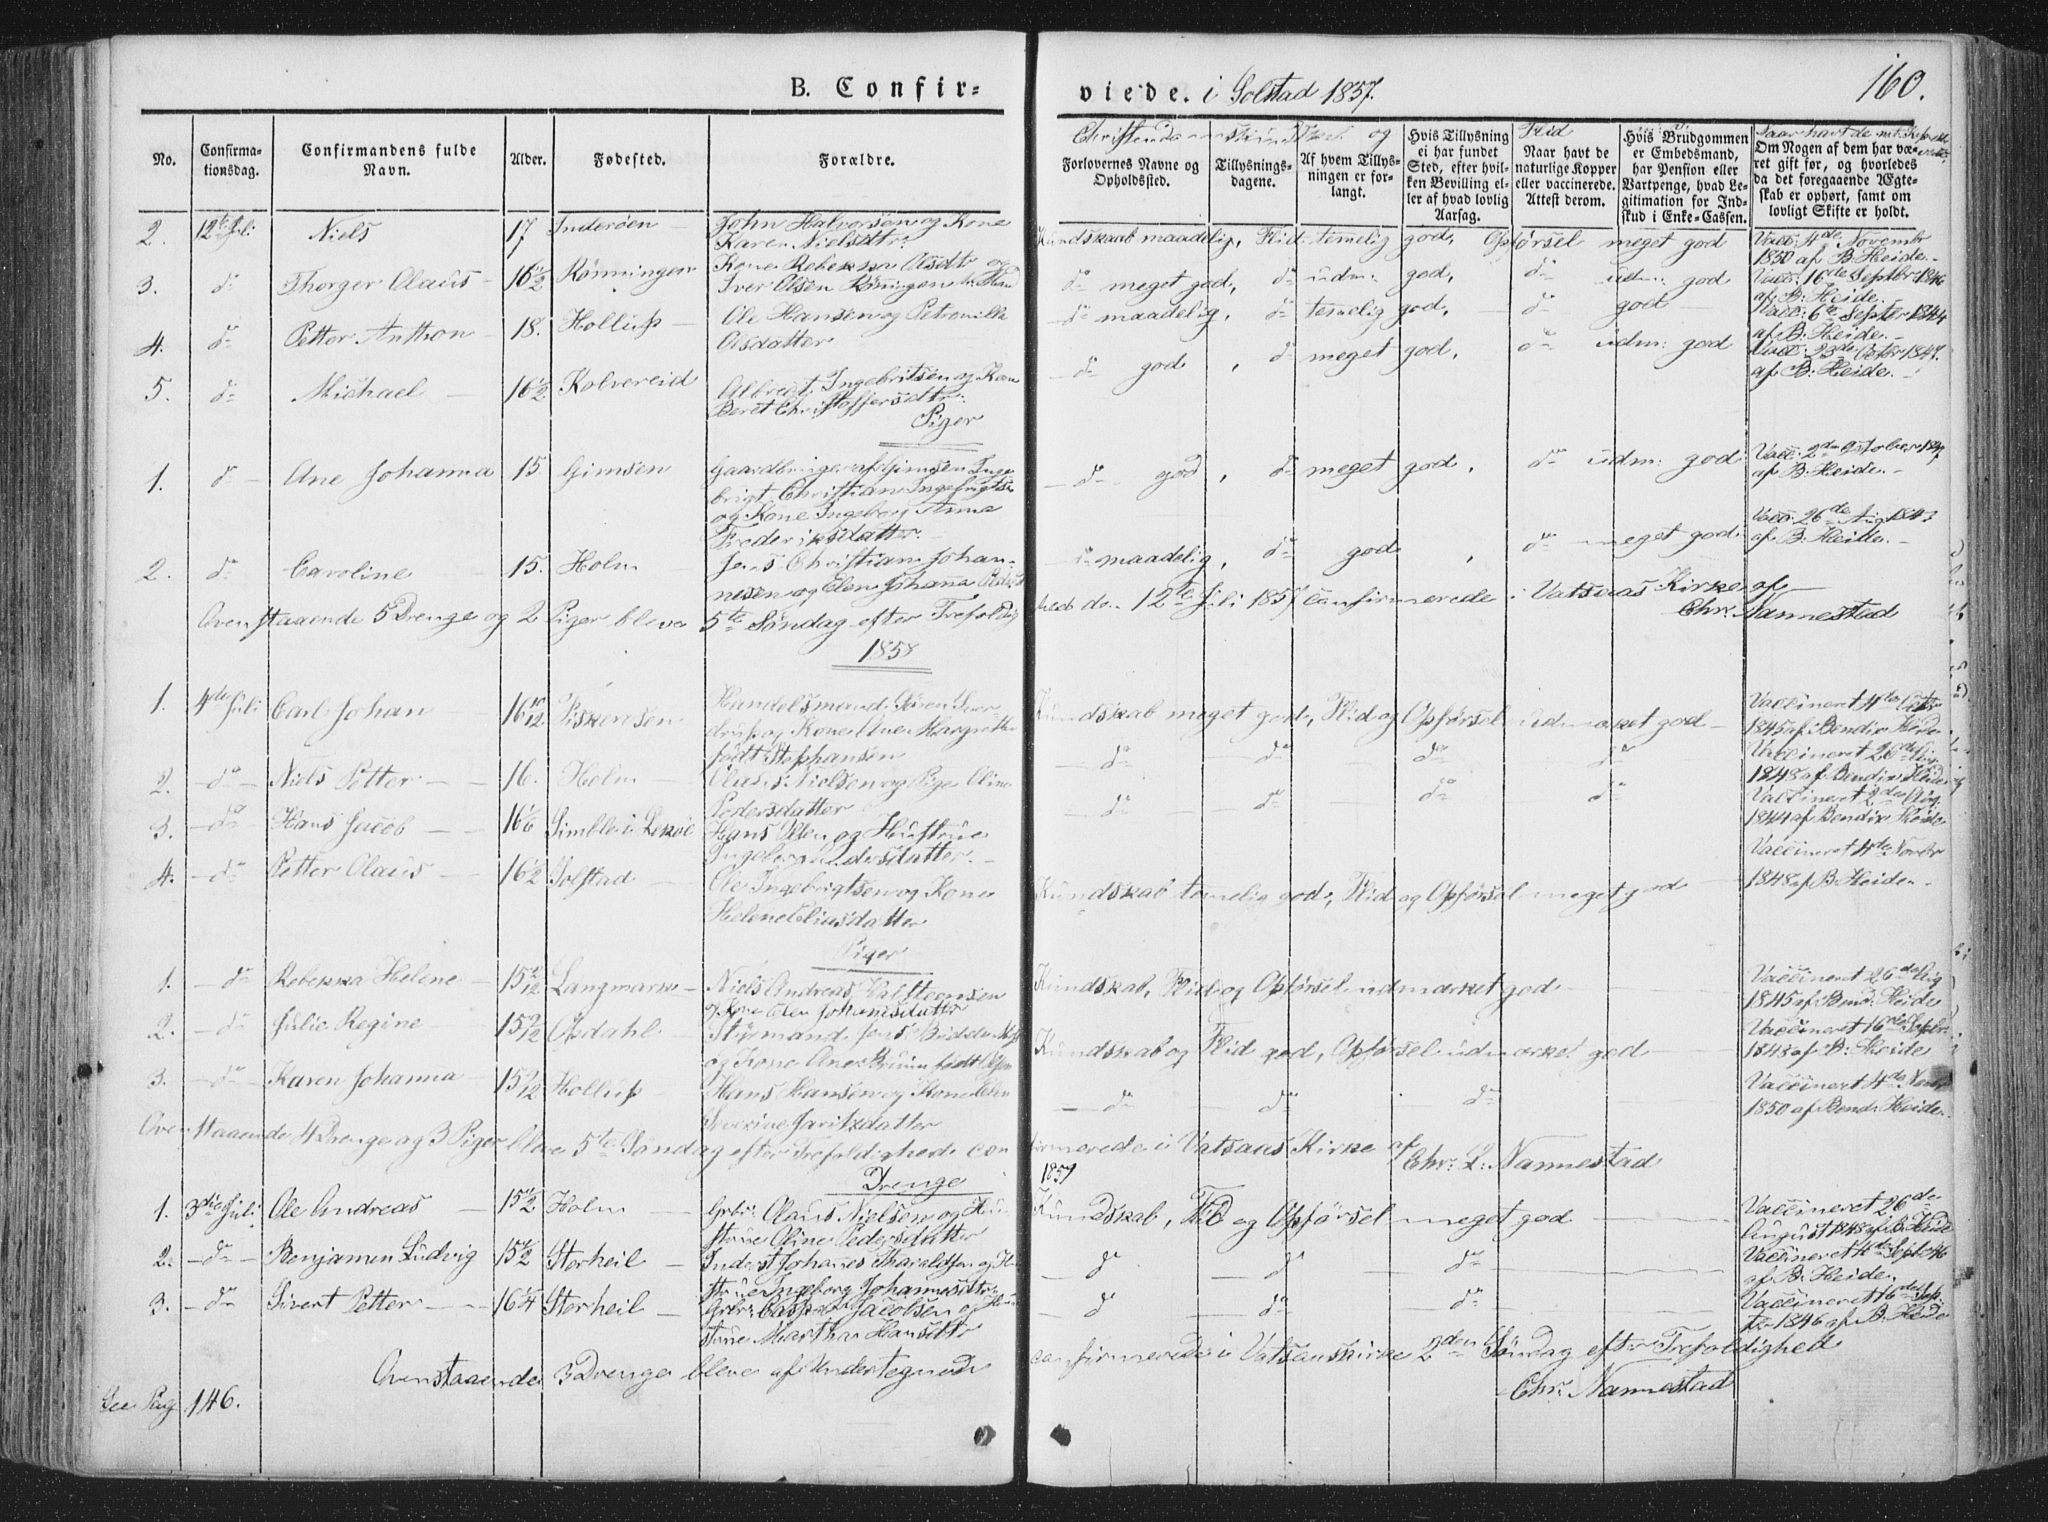 160.
B. Confir-
viede. i Solstad 1857.
No.
Confirma-
tionsdag.
Confirmandens fulde
Navn.
Alder.
Fødested.
Forældre.
Forlovernes Navne og
Opholdssted.
Tillysnings-
dagene.
Af hvem Tillys-
ningen er for-
langt.
Hvis Tillysning
ei har fundet
Sted, efter hvil-
ken Bevilling el-
ler af hvad lovlig
Aarsag.
Flid
Naar havt de
naturlige Kopper
eller vaccinerede.
Attest derom.
Hvis Brudgommen
er Embedsmand,
har Pension eller
Vartpenge, hvad Le-
gitimation for Ind-
skud i Enke-Cassen.
Om Nogen af dem har væ-
ret gift før, og hvorledes
da det foregaaende Ægte-
skab er ophørt, samt om
lovligt Skifte er holdt.
2. 12te Juli Niels 17 Inderøen John Halvorsen og Kone
Karen Nielsdtr. Kundskaab maadelig, Flid temelig god, Opførsel meget god Vacc: 4de Novembr
1850 af B. Heide.
3. do Thorger Olaus 16 1/2 Rönningen Kone Rebekka Olsdtr og
Iver Olsen Röningen do meget god, do udm: god, do udm: god Vacc: 16de Septbr 1846
af B: Heide.
4. do Petter Anthon 18. Hollup Ole Hansen og Petronille
Olsdatter do maadelig, do temelig god, do god Vacc: 6te Septbr 1844
af B: Heide.
5. do Michael 16 1/2 Kolvereid Albregt Ingebritsen og Kone
Beret Christoffersdtr: do god, do meget god, do udm: god Vacc: 23de Octbr 1847.
af B: Heide.
Piger
1. do Ane Johanna 15 Gimsen Gaardbruger af Gimsen Inge
brigt Christian Ingebrigtsen
og Kone Ingeborg Anna
Frederiksdatter. do god, do meget god, do udm: god Vacc: 2den October 1847
af B: Heide.
2. do Caroline 15. Holm Jens Christian Johan-
nesen og Elen Johana do maadelig, do god, do meget god Vacc: 26de Aug 1843
af B: Heide.
Ovenstaaende 5 Drenge og 2 Piger bleve 5te Søndag efter Trefoldig
hed den 12te Juli 1857 confirmerede i Vatsaas Kirke af
Chr. Nannestad
1858
1. 4de Juli Carl Johan 16 10/12 Fiskerosen Handelsmand Sören
og Kone Ane Margrethe
født Stephansen Kundskab meget god, Flid og Opførsel udmærket god Vaccineret 4de Octbr
1845 af Bendix Heide
2. do Niels Petter 16. Holm Olaus Nielsen og Pige Oline
Pedersdatter do do do do Vaccineret 26de Aug
1848 af Bendix Heide
3. do Hans Jacob 16 1/6 Simble i Lekøe Hans Olsen og Hustrue
Ingeborg Andersdatter. do do do do Vaccineret 2den Aug.
1844 af Bendix Heide
4. do Petter Olaus 16 1/2 Solstad Ole Ingebrigtsen og Kone
Helene Eliasdatter Kundskab temelig god, Flid og Opførsel meget god Vaccineret 4de Novbr
1848 af B. Heide.
Piger
1. do Rebekka Helene 15 Langmark Niels Andreas
og Kone Elen Johanisdatter Kundskab, Flid og Opførsel udmærket god Vaccineret 26de Aug
1845 af Bend: Heide
2. do Julie Regine 15 Opdahl Styrmand Jens
og Kone Ane Bruun født Olsen Kundskab og Flid god, Opførsel udmærket god Vaccineret 16de Septbr.
1843 af B: Heide
3. do Karen Johanna 15 Hollup Hans Hansen og Kone Elen
Severine Jaritzdatter do do do Vaccinert 4de Novbr
1850 af Bend: Heide.
Ovenstaaende 4 Drenge og 3 Piger bleve 5te Søndag efter Trefoldighed con
firmerede i Vatsaas Kirke af Chr. L. Nannestad
Drenge 1859
1. 3die Juli Ole Andreas 15 1/2 Holm Grbr: Olaus Nielsen og Hu-
strue Oline Pedersdatter Kundskab, Flid og Opførsel meget god Vaccineret 26de
August 1848 af B. Heide
2. do Benjamen Ludvig 15 1/2 Storheil Inderst Johanes Tharaldsen og Hu
strue Ingeborg Johannesdtr do do do Vaccineret 4de Septbr 46
af B: Heide.
3. do Sivert Petter 16 1/4 Storheil Grbr: Casper Jacobsen og Hu
strue Martha Hansdtr do do do Vaccineret 16de Sep.
tbr 1846 af B. Heide
Ovenstaaende 3 Drenge bleve af Undertegnede
confirmerede i Vatsaas Kirke 2den Søndag efter Trefoldighed
Chr. Nannestad
See Pag 146.